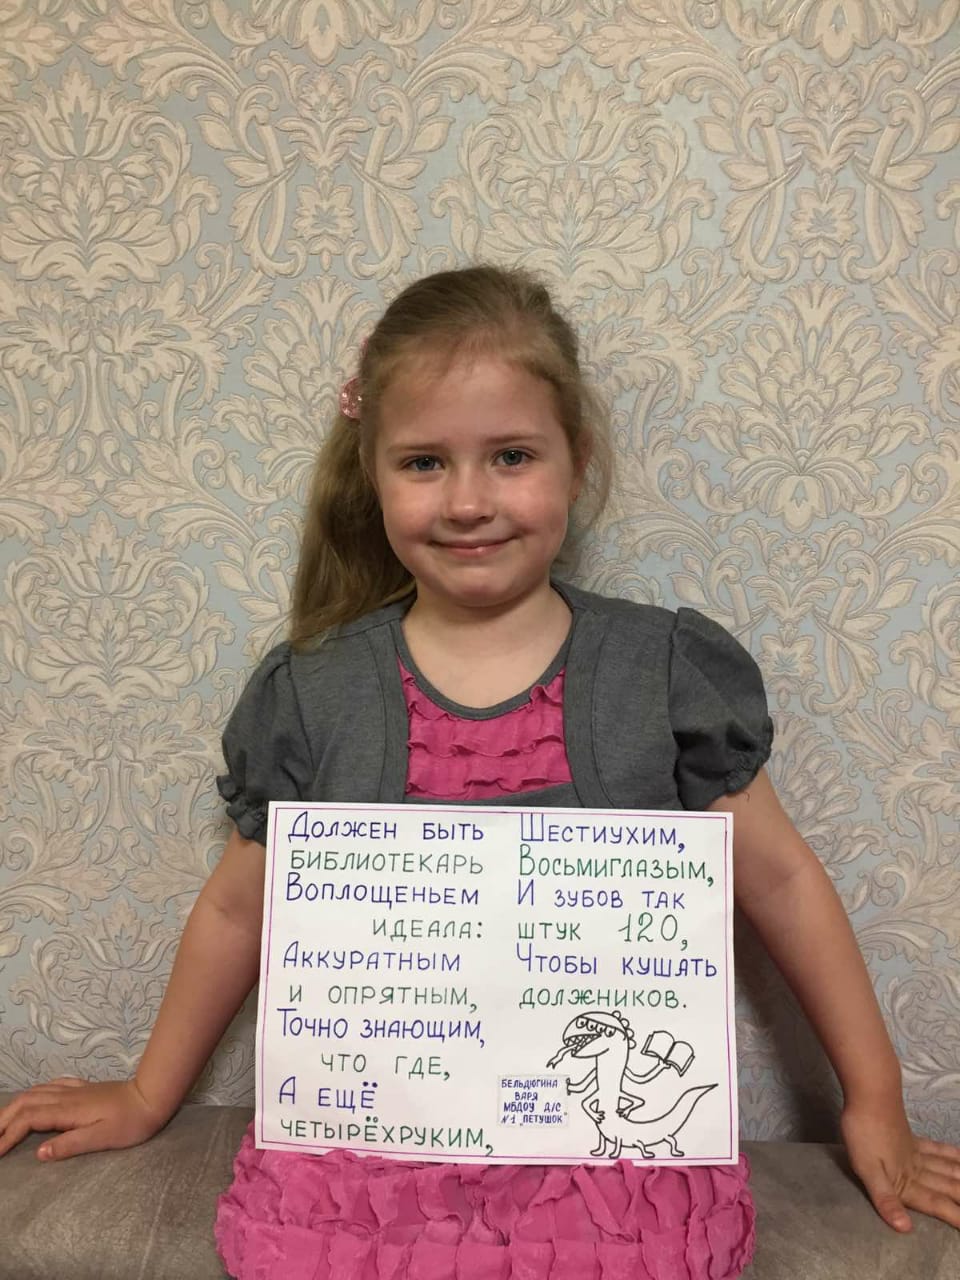 Должен быть
библиотекарь
Воплощеньем
идеала:
Аккуратным
и опрятным,
Точно знающим,
что где,
А ещё
четырёхруким,
Шестиухим,
Восьмиглазым,
И зубов так
штук 120,
Чтобы кушать
должников.
БЕЛЬДЮГИНА
ВАРЯ
МБДОУ Д/С
№1 „ПЕТУШОК"